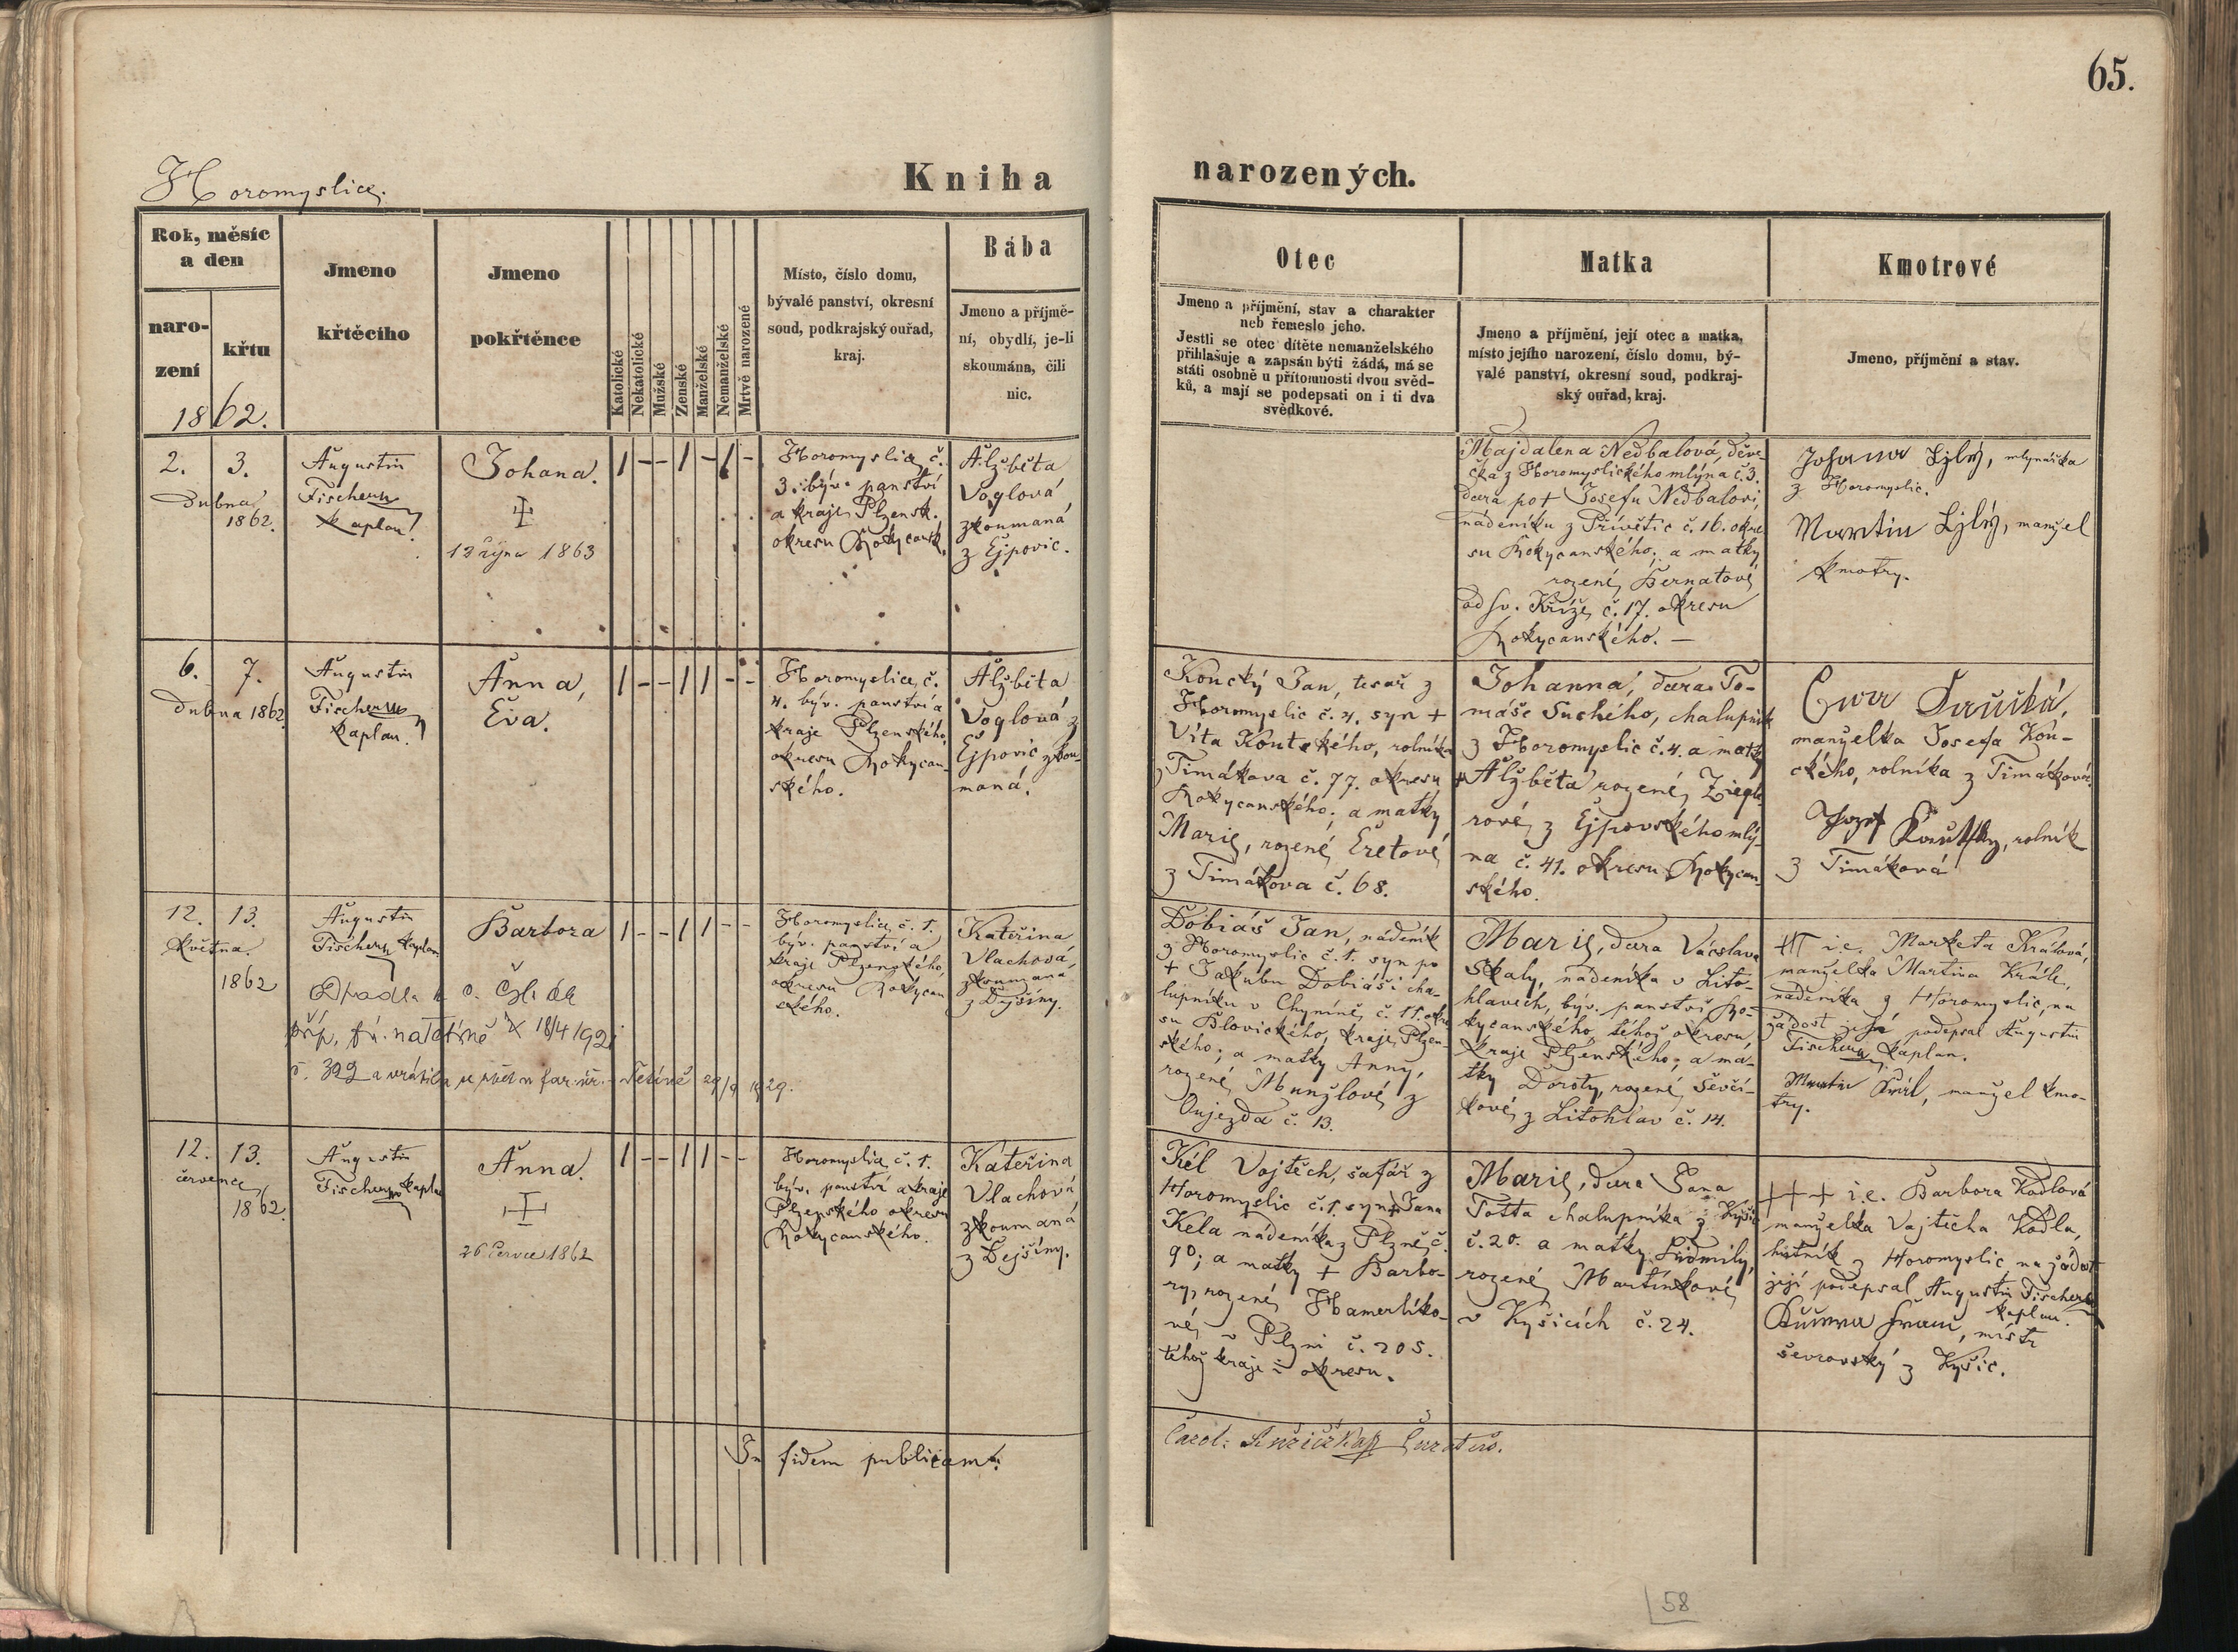 65.
Horomyslice.
Kniha narozených.
Rok, měsíc
a den
naro-
zení
křtu
1862.
Jmeno
křtěcího
Jmeno
pokřtěnce
Katolické
Nekatolické
Mužské
Ženské
Manželské
Nemanželské
Mrtvě narozené
Místo, číslo domu,
bývalé panství, okresní
soud, podkrajský ouřad,
kraj.
Bába
Jmeno a příjmě-
ní, obydlí, je-li
skoumána, čili
nic.
Otec
Jmeno a příjmění, stav a charakter
neb řemeslo jeho.
Jestli se otec dítěte nemanželského
přihlašuje a zapsán býti žádá, má se
státi osobně u přítomnosti dvou svěd-
ků, a mají se podepsati on i ti dva
svědkové.
Matka
Jmeno a příjmění, její otec a matka,
místo jejího narození, číslo domu, bý-
valé panství, okresní soud, podkraj-
ský ouřad, kraj.
Kmotrové
Jmeno, příjmění a stav.
2. 3.
Dubna
1862.
Augustin
Fischer
kaplan.
Johana.
12 října 1863
1 - - 1 - 1 -
Horomyslice, č.
3. býv. panství
a kraje Plzensk.
okresu Rokycansk.
Alžběta
Voglová
zkoumaná
z Ejpovic.
Majdalena Nedbalová, děve-
čka z Horomyslického mlýna č. 3.
dcera po + Josefu Nedbalovi,
nádeníku z Přívětic č. 16. okre-
su Rokycanského; a matky
rozené Bernatové
od sv. Kříže č. 17. okresu
Rokycanského. —
Johana, mlynářka
z Horomyslic.
Martin, manžel
kmotry.
6. 7.
Dubna 1862.
Augustin
Fischer
kaplan.
Anna,
Eva.
1 - - 1 1 - -
Horomyslice, č.
4. býv. panství a
kraje Plzenského,
okresu Rokycan-
ského.
Alžběta
Voglová z
Ejpovic zkou-
maná.
Koucký Jan, tesař z
Horomyslic č. 4. syn +
Víta Kouckého, rolníka
z Timákova č. 77. okresu
Rokycanského; a matky
Marie, rozené Eretové
z Timákova č. 68.
Johanna, dcera To-
máše Suchého, chalupník
z Horomyslic č. 4. a matky
+ Alžběta rozené Ziegle-
rové z Ejpovského mlý-
na č. 41. okresu Rokycan-
ského.
manželka Josefa Kou-
ckého, rolníka z Timákova.
Josef, rolník
z Timákova
12. 13.
Května.
1862
Augustin
Fischer kaplan
Barbora
1 - - 1 1 - -
Horomyslice, č. 1.
býv. panství a
kraje Plzenského,
okresu Rokycan
ského.
Kateřina
Vlachová,
zkoumaná
z Dyšiny.
Dobiáš Jan, nádeník
z Horomyslic č. 1. syn po
+ Jakubu Dobiáši cha-
lupníku v Chyníně, č. 11. okre
su Blovického, kraje Plzen-
ského; a matky Anny,
rozené Munzlové z
Oujezda č. 13.
Marie, dcera Václava
Skaly, nádeníka v Lito-
hlavech, býv. panství Ro-
kycanského, téhož okresu,
kraje Plzenského; a ma-
tky Doroty, rozené Ševčí-
kové z Litohlav č. 14.
+++ i.e. Marketa Králová,
manželka Martina Krále,
nádeníka z Horomyslic, na
žádost její podepsal Augustin
Fischer, kaplan.
Martin Král, manžel kmo-
try.
12. 13.
července
1862.
Augustin
Fischer kaplan
Anna.
26. Července 1862
1 - - 1 1 - -
Horomyslice, č. 1.
býv. panství a kraje
Plzenského okresu
Rokycanského.
Kateřina
Vlachová
zkoumaná
z Dejšiny.
Kél Vojtěch, šafář z
Horomyslic č. 1. syn + Jana
Kela nádeníka z Plzně, č.
90; a matky + Barbo-
ry, rozené Hamerlíko-
vé v Plzni č. 205.
téhož kraje i okresu.
Marie, dcera Jana
Totta chalupníka z Kyšic
č. 20. a matky Lidmily,
rozené Martínkové
v Kyšicích č. 24.
+++ i.e. Barbora Kadlová
manželka Vojtěcha Kádla,
z Horomyslic na žádost
její podepsal Augustin Fischer
kaplan.
mistr
ševcovský z Kyšic.
In fidem publicam:
58